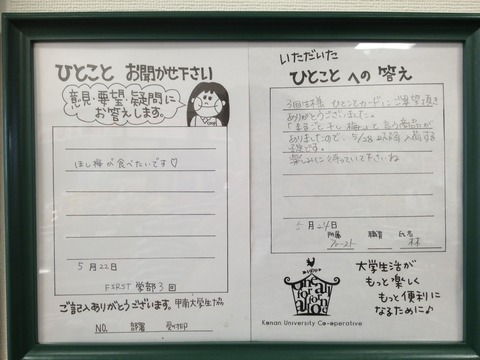 ひとこと お聞かせ下さい
意見・要望・疑問に
お答えします。
ほし梅が食べたいです♡
5月22日
FIRST 学部 3回
ご記入ありがとうございます。甲南大学生協
NO. 部署 受付印
いただいた
ひとことへの答え
3回生様 ひとことカードにご希望頂き
ありがとうございました。
「まるごと干し梅」と言う商品が
ありましたので、5/28以降入荷する
予定です。
楽しみに待っていて下さいね
5月24日
所属 職責 氏名
林
one for all all for one
大学生活が
もっと楽しく
もっと便利に
なるために♪
Konan University Co-operative